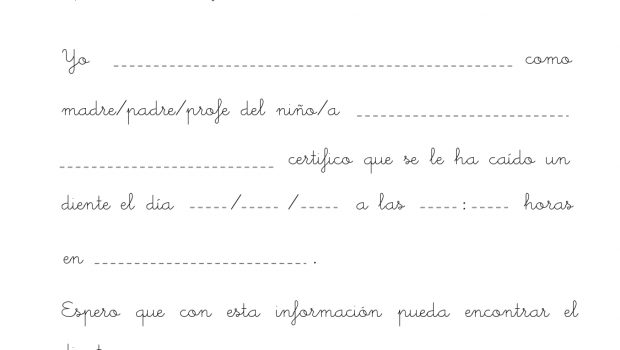 Yo ______ como
madre/padre/profe del niño/a ______
______ certifico que se le ha caído un
diente el día ____/____ /____ a las ____:____ horas
en ______.
Espero que con esta información pueda encontrar el